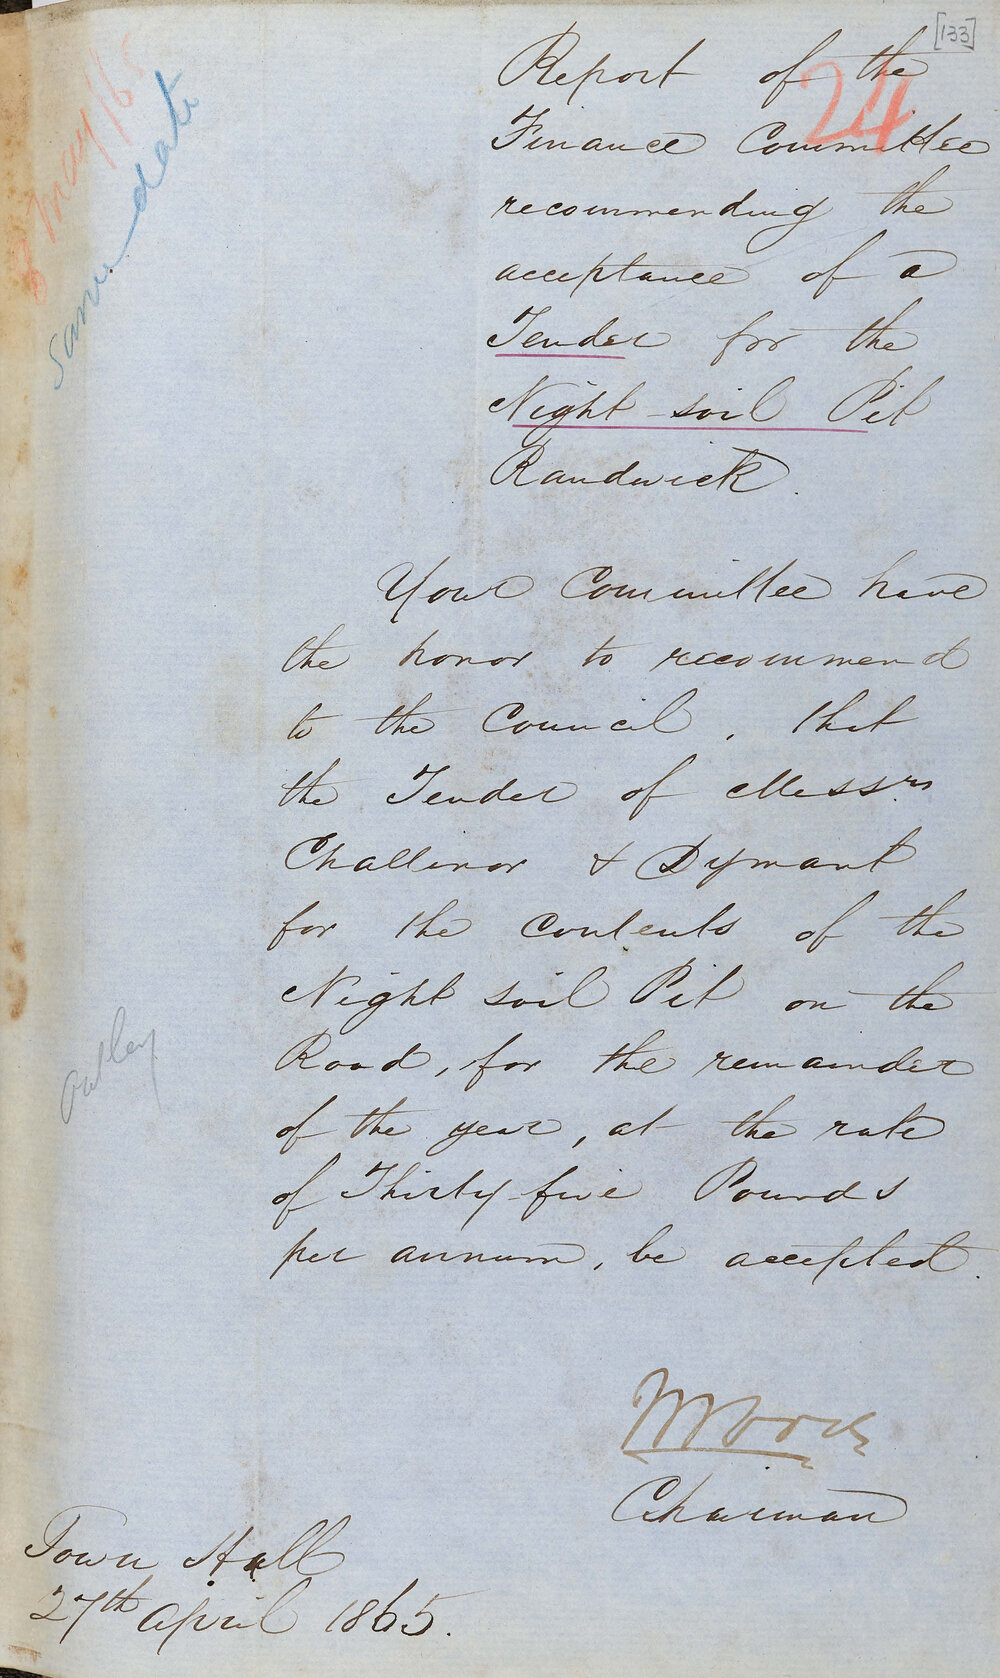 [133]
24
8 May /65
Same date
Report of the
Finance Committee
recommending the
acceptance of a
Tender for the
Night-soil Pit
Randwick.
Your Committee have
the honor to recommend
to the Council, that
the Tender of Messrs
Challinor & Dymant
for the contents of the
Night soil Pit on the
Road, for the remainder
of the year, at the rate
of Thirty five Pounds
per annum, be accepted.
Chairman
Town Hall
27th April 1865.